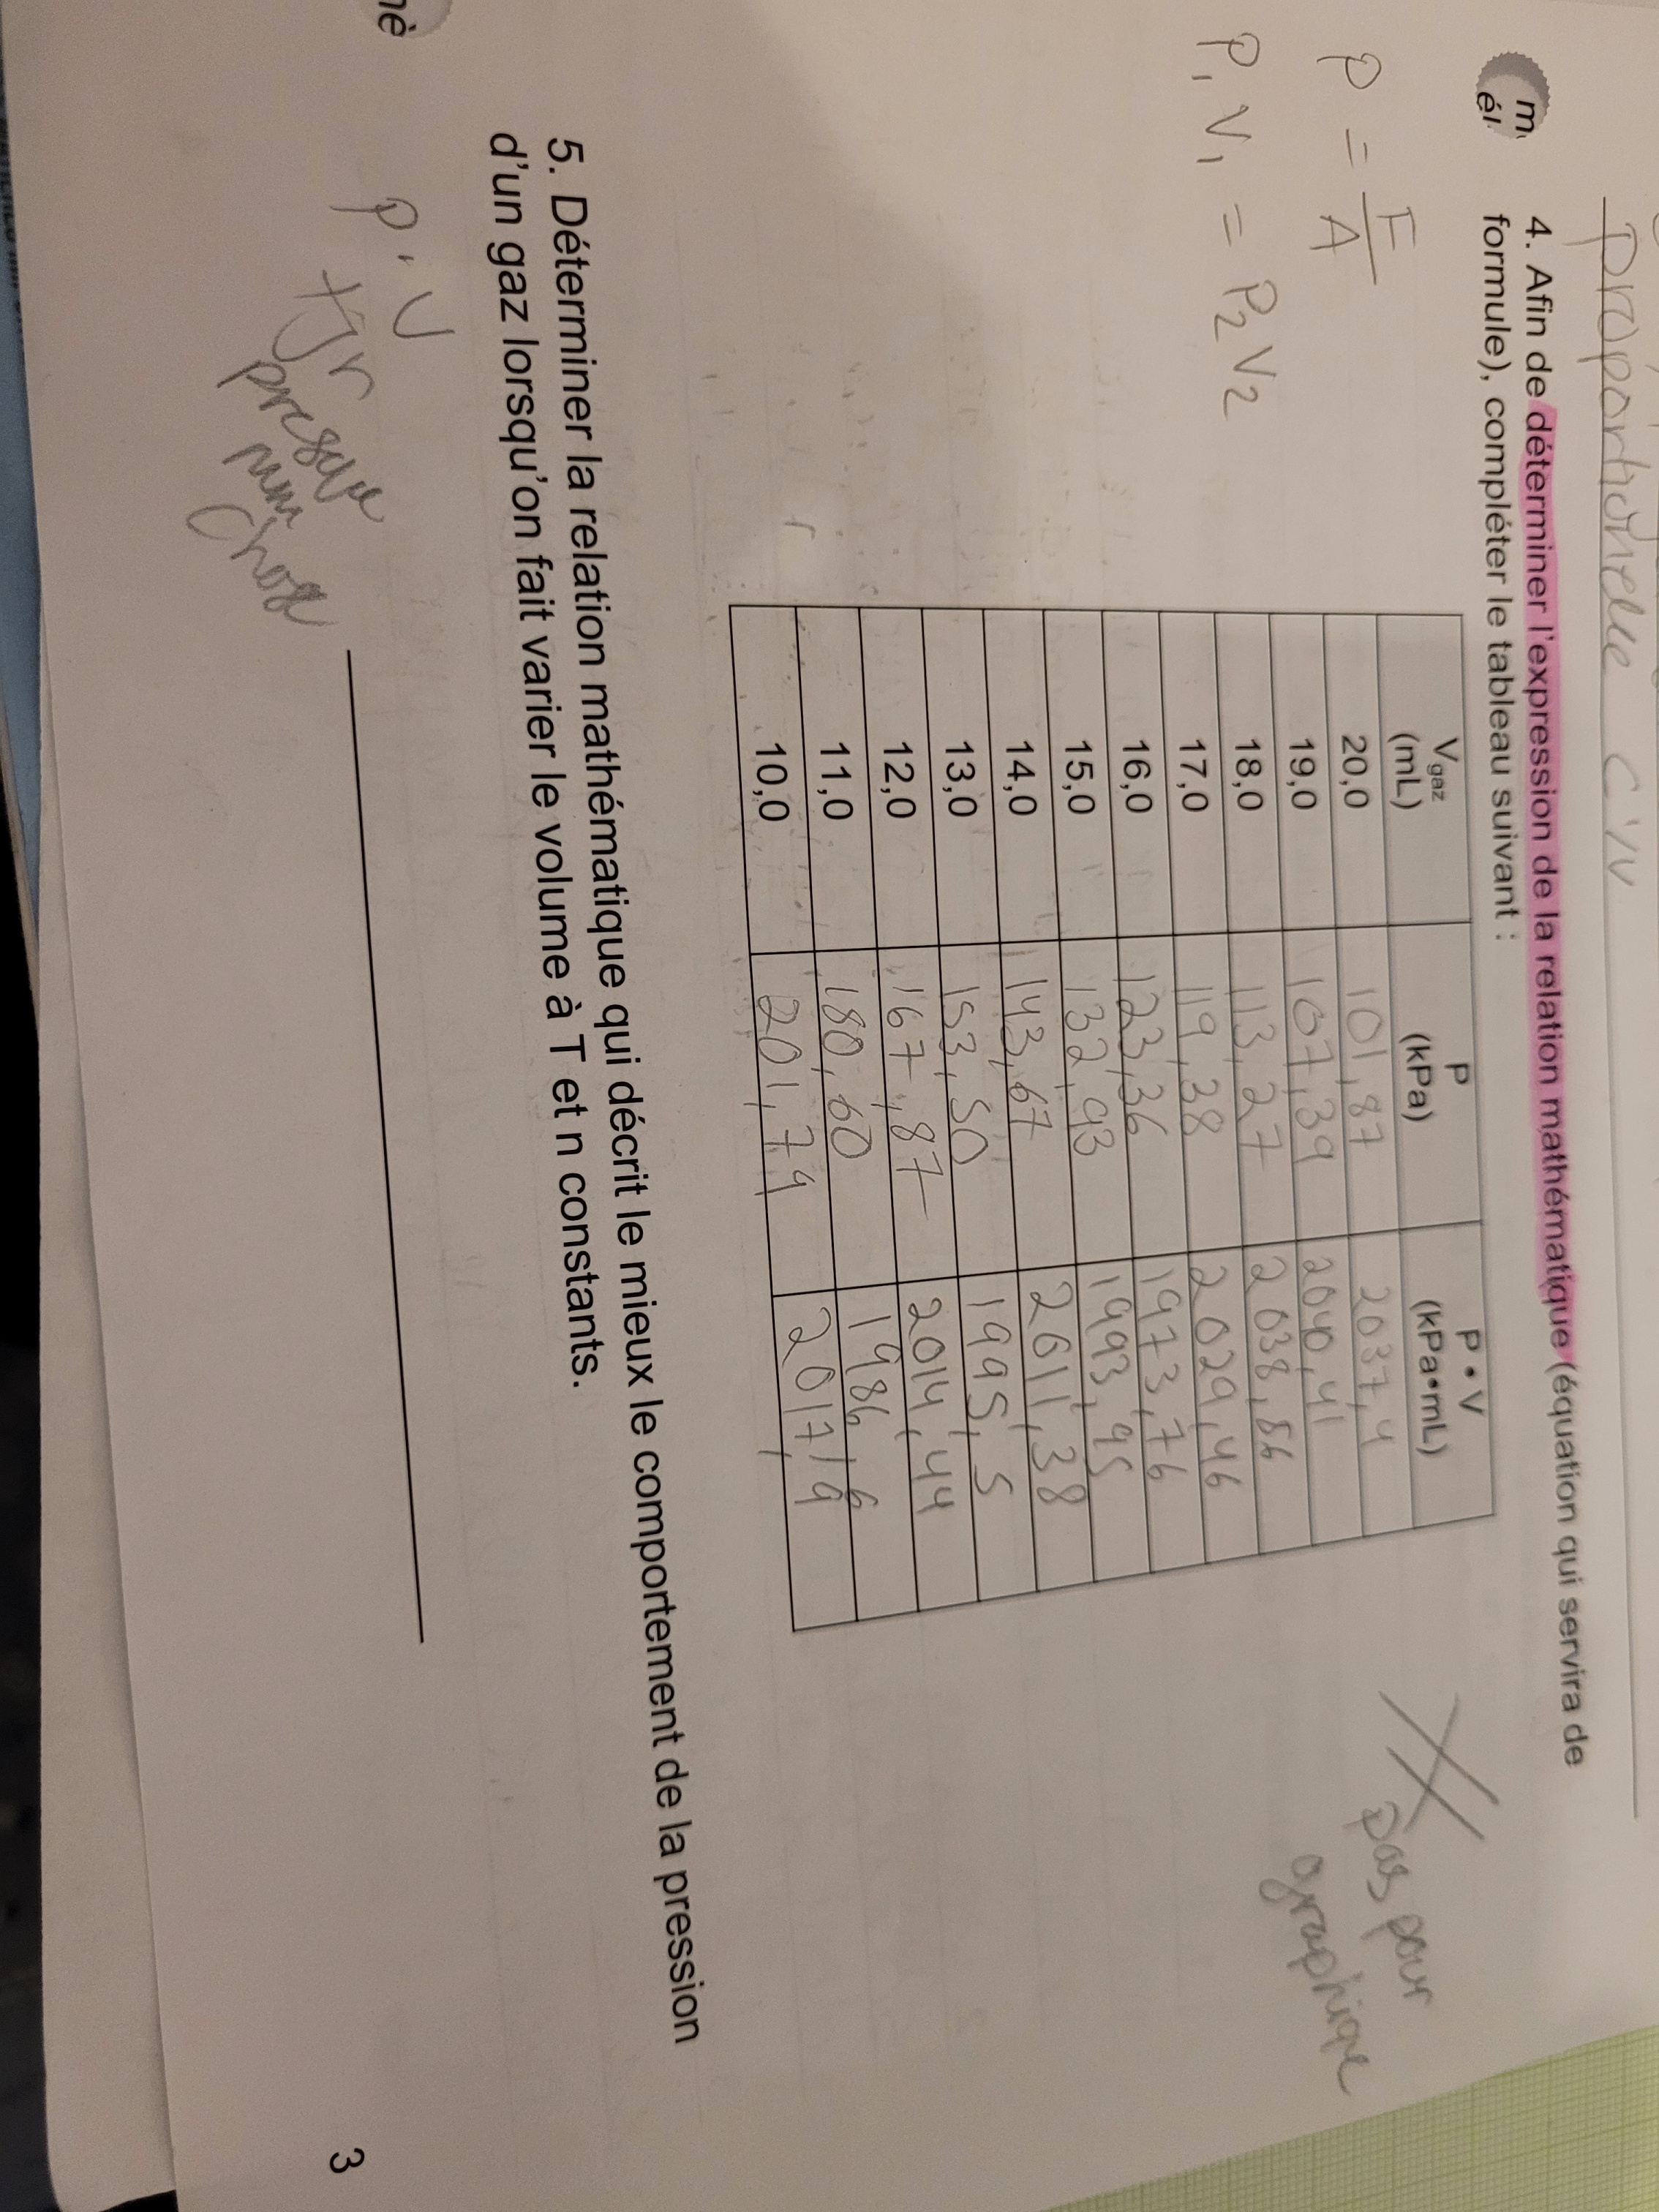 proportionelle
m
él
4. Afin de déterminer l'expression de la relation mathématique (équation qui servira de
formule), compléter le tableau suivant :
P = F/A
P₁ V₁ = P₂ V₂
pas pour
graphique
Vgaz (mL) P (kPa) P • V (kPa•mL)
20,0 101,87 2037,4
19,0 107,39 2040,41
18,0 113,27 2038,86
17,0 119,38 2029,46
16,0 123,36 1973,76
15,0 132,93 1993,95
14,0 143,67 2011,38
13,0 153,50 1995,5
12,0 167,87 2014,44
11,0 180,60 1986,6
10,0 201,79 2017,9
5. Déterminer la relation mathématique qui décrit le mieux le comportement de la pression
d'un gaz lorsqu'on fait varier le volume à T et n constants.
P • V
tjr
presque
mm
chose
3